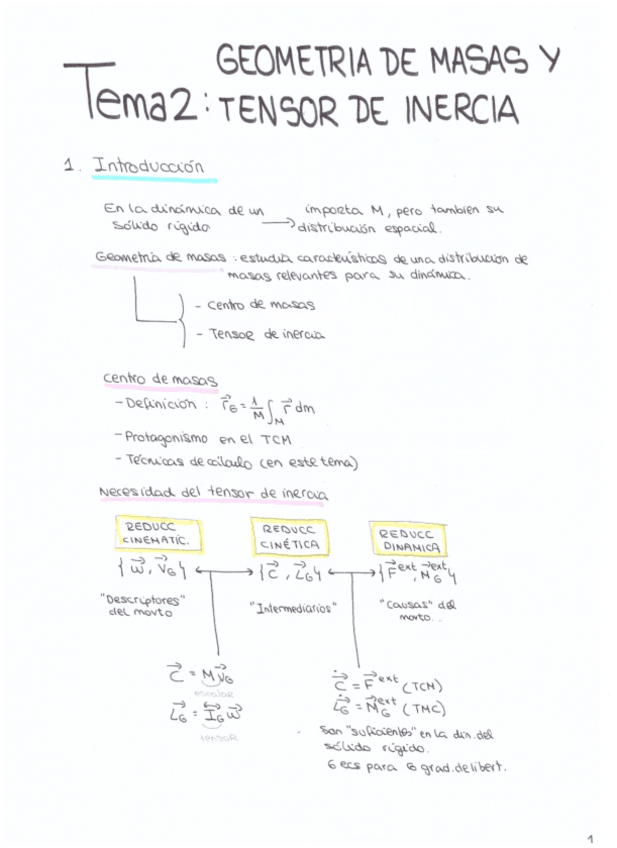 GEOMETRIA DE MASAS Y
Tema 2: TENSOR DE INERCIA
1. Introducción
En la dinámica de un sólido rígido → importa M, pero tambien su distribución espacial.
Geometría de masas : estudia características de una distribución de
masas relevantes para su dinámica.
- Centro de masas
- Tensor de inercia
Centro de masas
- Definición : r⃗_G = 1/M ∫_M r⃗ dm
- Protagonismo en el TCM
- Técnicas de cálculo (en este tema)
Necesidad del tensor de inercia
REDUCC CINEMATIC. REDUCC CINÉTICA REDUCC DINAMICA
{ω⃗, v⃗_G} ↔ {C⃗, L⃗_G} ↔ {F⃗^ext, M⃗_G^ext}
"Descriptores" del movto "Intermediarios" "Causas" del movto.
C⃗ = M v⃗_G
escalar
L⃗_G = I_G ω⃗
tensor
C⃗˙ = F⃗^ext (TCM)
L⃗˙_G = M⃗_G^ext (TMC)
Son "suficientes" en la din. del
sólido rígido.
6 ecs para 6 grad. de libert.
1